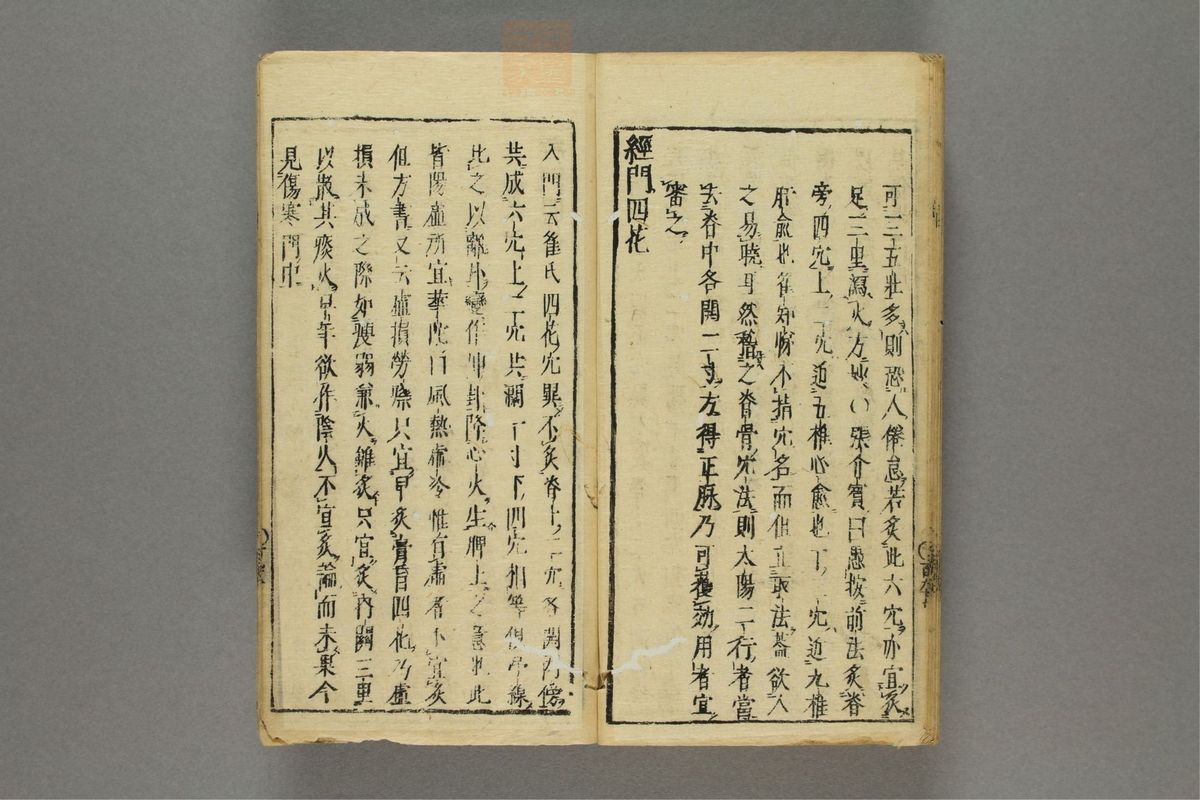 可三五壯多則恐人倦怠若灸此六穴亦宜灸
足三里瀉火方妙〇張介賓曰愚按前法灸脊
旁四穴上二穴近五椎心俞也下二穴近九椎
肝俞也崔知悌不指穴名而但立取法蓋欲人
之易曉耳然稽之脊骨穴法則太陽二行者當
去脊中各開二寸方得正脉乃可獲効用者宜
審之
經門四花
入門云崔氏四花穴異不灸脊上二穴各開兩傍
共成六穴上二穴共濶一寸下四穴相等俱吊線
比之以離卦變作坤卦降心火生脾土之意也此
皆陽虛所宜華陀曰風熱虛冷惟有肅者不宜灸
但方書又云虛損勞瘵只宜早灸膏肓四花乃虛
損未成之際如瘦弱兼火雖灸只宜灸內關三里
以散其痰火早年欲作陰火不宜灸論而未果今
見傷寒門中